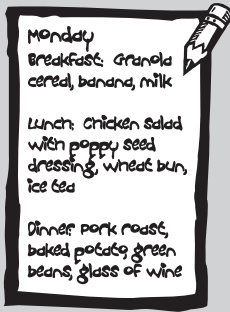 Monday
Breakfast: Granola
cereal, banana, milk
Lunch: Chicken salad
with poppy seed
dressing, wheat bun,
ice tea
Dinner: Pork roast,
baked potato, green
beans, glass of wine